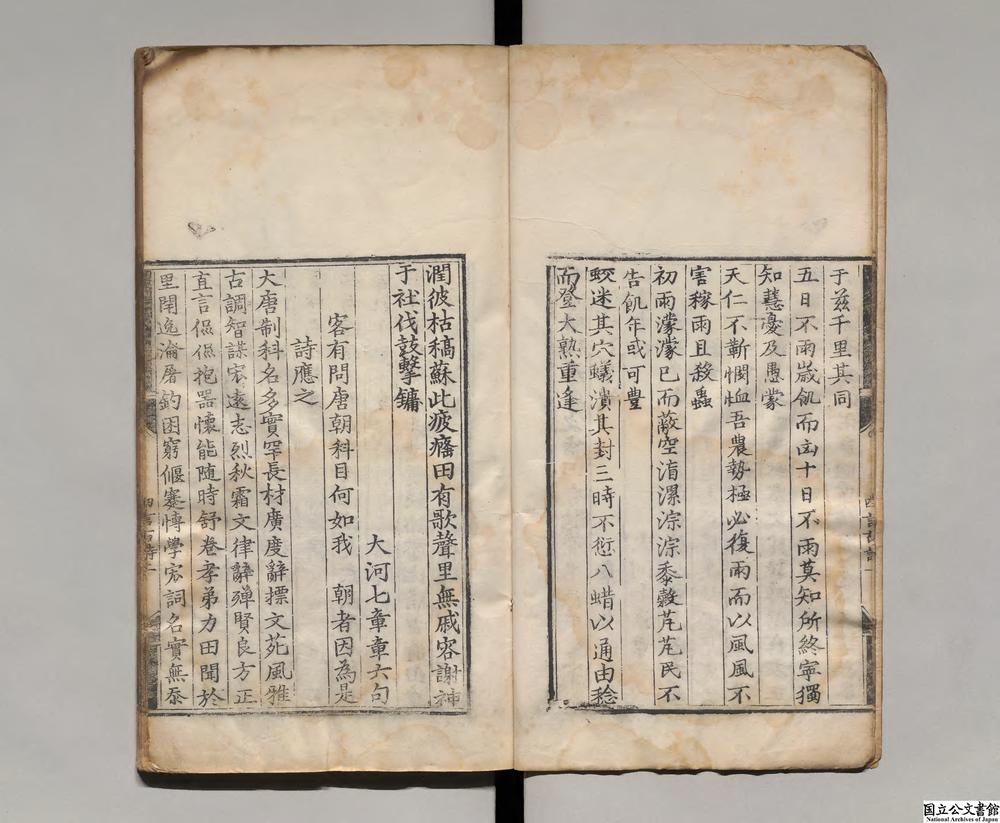 于兹千里其同
五日不雨歲飢而凶十日不雨莫知所終寧獨
知慧憂及愚蒙
天仁不靳憫恤吾農勢極必復雨而以風風不
害稼雨且殺蟲
初雨濛濛已而蔽空湝漯淙淙黍薿芃芃民不
告飢年或可豊
蛟迷其穴蟻潰其封三時不愆八蜡以通由稔
而登大熟重逢
潤彼枯稿蘇此疲癃田有歌聲里無戚容謝神
于社伐鼓擊鏞
大河七章章六句
客有問唐朝科目何如我 朝者因為是
詩應之
大唐制科名多實罕長材廣度辭摽文苑風雅
古調智謀宏遠志烈秋霜文律辭殫賢良方正
直言偘偘抱器懷能随時舒卷孝弟力田聞於
里閈逸淪屠釣困窮偃蹇博學宏詞名實無忝
四言古詩一
四言古詩二
国立公文書館
National Archives of Japan